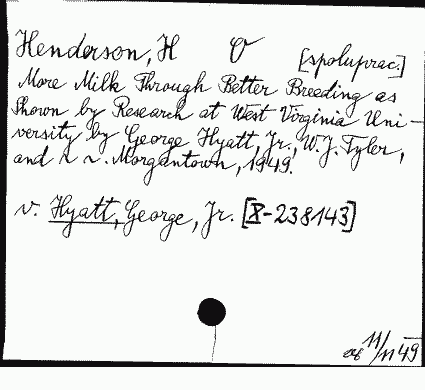 Henderson, H O [spoluprac.]
More Milk Through Better Breeding as
Shown by Research at West Virginia Uni-
versity by George Hyatt, Jr., W. J. Tyler,
and . Morgantown, 1949.
v. Hyatt, George, Jr. [X-238143]
11/11 49